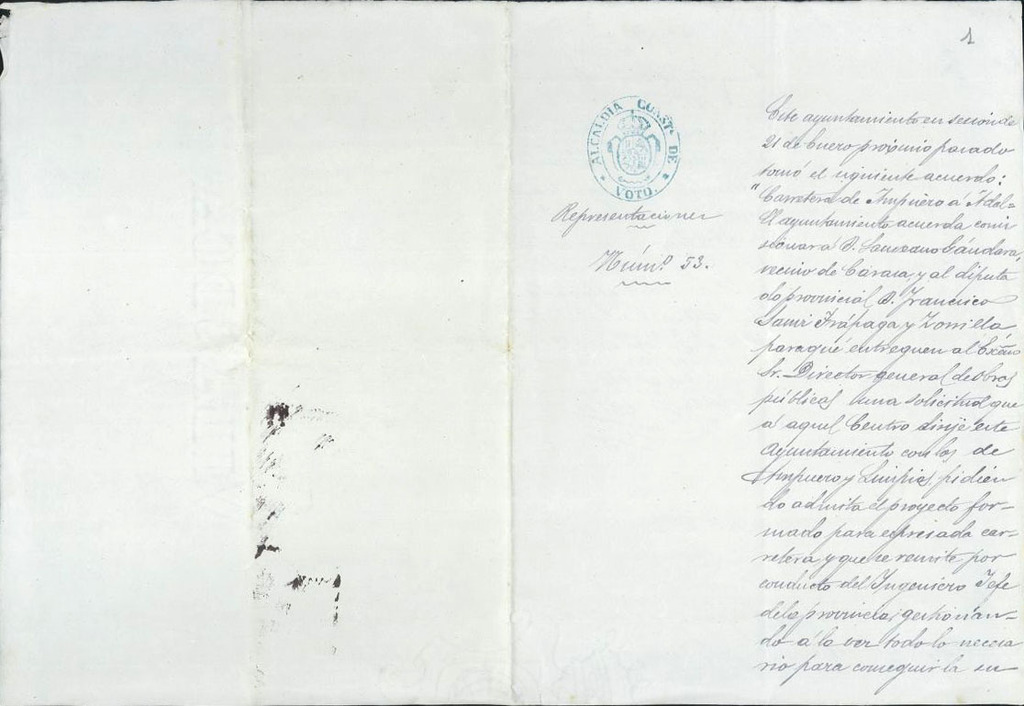 1
ALCALDIA CONST.ᴸ DE
* VOTO. *
Representaciones
Núm.º 53.
Este ayuntamiento en sesion de
21 de Enero próximo pasado
tomó el siguiente acuerdo:
"Carretera de Ampuero á Adal=
El ayuntamiento acuerda comi
sionar á D. Laureano Gándara,
vecino de Carasa y al diputa
do provincial D. Francisco
Sainz Trápaga y Zorrilla,
para qué entreguen al Excmo
Sr. Director general de Obras
públicas una solicitud que
á aquel Centro dirije este
Ayuntamiento con los de
Ampuero y Limpias pidien
do admita el proyecto for=
mado para espresada car=
retera y que se remite por
conducto del Ingeniero Jefe
de la provincia; gestionan=
do á la vez todo lo necesa
rio para conseguir la su